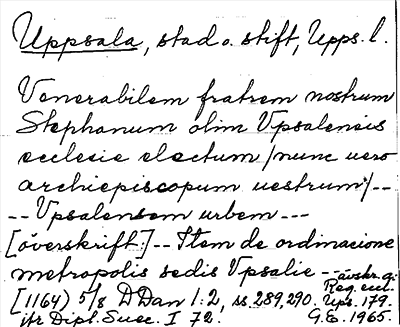 Uppsala, stad o. stift, Upps. l.
Venerabilem fratrem nostrum
Stephanum olim Vpsalensis
ecclesie electum /nunc uero
archiepiscopum uestrum/--
--Vpsalensem urbem---
[överskrift:]--Item de ordinacione
metropolis sedis Vpsalie--avskr. a:
Reg. eccl.
[1164) 5/8 DDan I:2, ss. 289, 290. Ups. 179.
jfr Dipl. Suec. I 72. G.E. 1965.